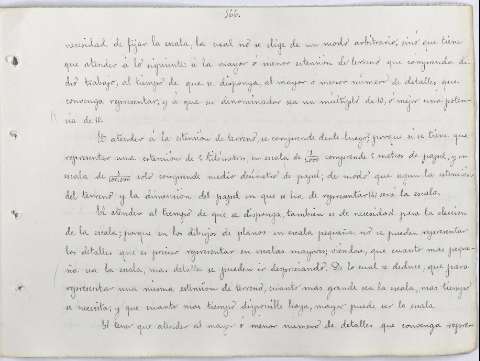 566.
necesidad de fijar la escala, la cual no se elige de un modo arbitrario, sinó que tiene
que atender á lo siguiente: á la mayor ó menor extensión de terreno que comprenda di-
cho trabajo, al tiempo de que se disponga, al mayor ó menor número de detalles que
convenga representar, y á que su denominador sea un múltiplo de 10, ó mejor una poten-
cia de 10.
El atender á la extensión de terreno, se comprende desde luego; porque si se tiene que
representar una extensión de 5 kilómetros, en escala de 1/1.000 comprende 5 metros de papel, y en
escala de 1/100.000 solo comprende medio decímetro de papel; de modo que según la extensión
del terreno y la dimensión del papel en que se ha de representar así será la escala.
El atender al tiempo de que se disponga, también es de necesidad para la elección
de la escala; porque en los dibujos de planos en escala pequeña no se pueden representar
los detalles que es preciso representar en escalas mayores; viéndose, que cuanto mas peque-
ña sea la escala, mas detalles se pueden ir despreciando. De lo cual se deduce, que para
representar una misma extensión de terreno, cuanto mas grande sea la escala, mas tiempo
se necesita; y que cuanto mas tiempo disponible haya, mayor puede ser la escala.
El tener que atender al mayor ó menor número de detalles que convenga repre-